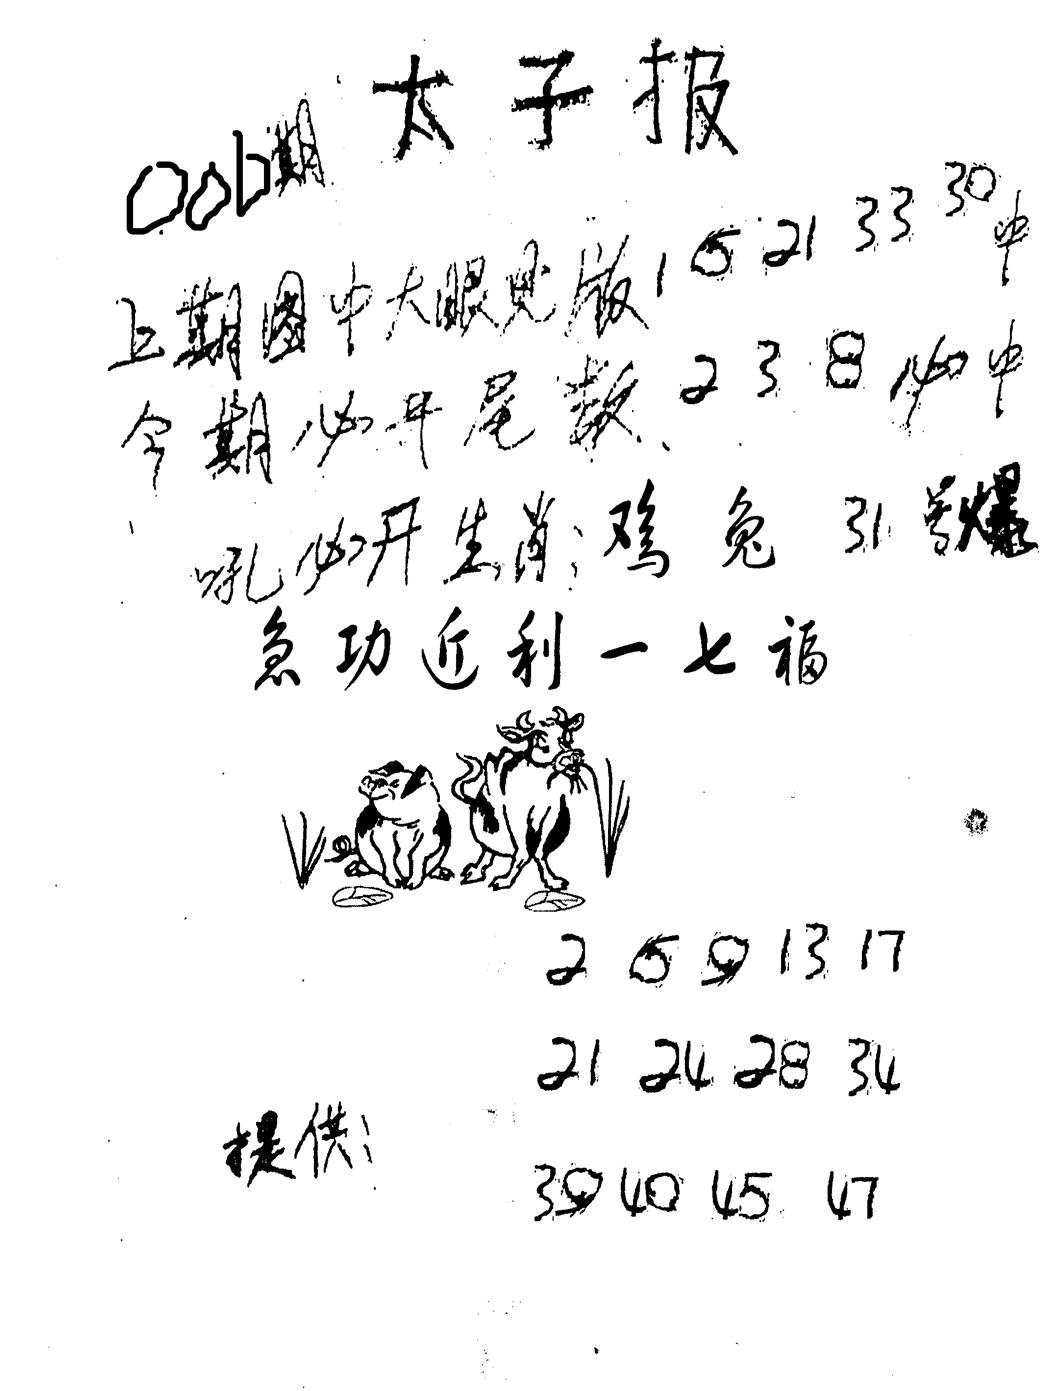 太子报
006期
上期图中大眼见版1 5 21 33 30中
今期必开尾数、2 3 8必中
吼必开生肖：鸡兔 31号爆
急功近利一七福
2 5 9 13 17
21 24 28 34
提供：
39 40 45 47